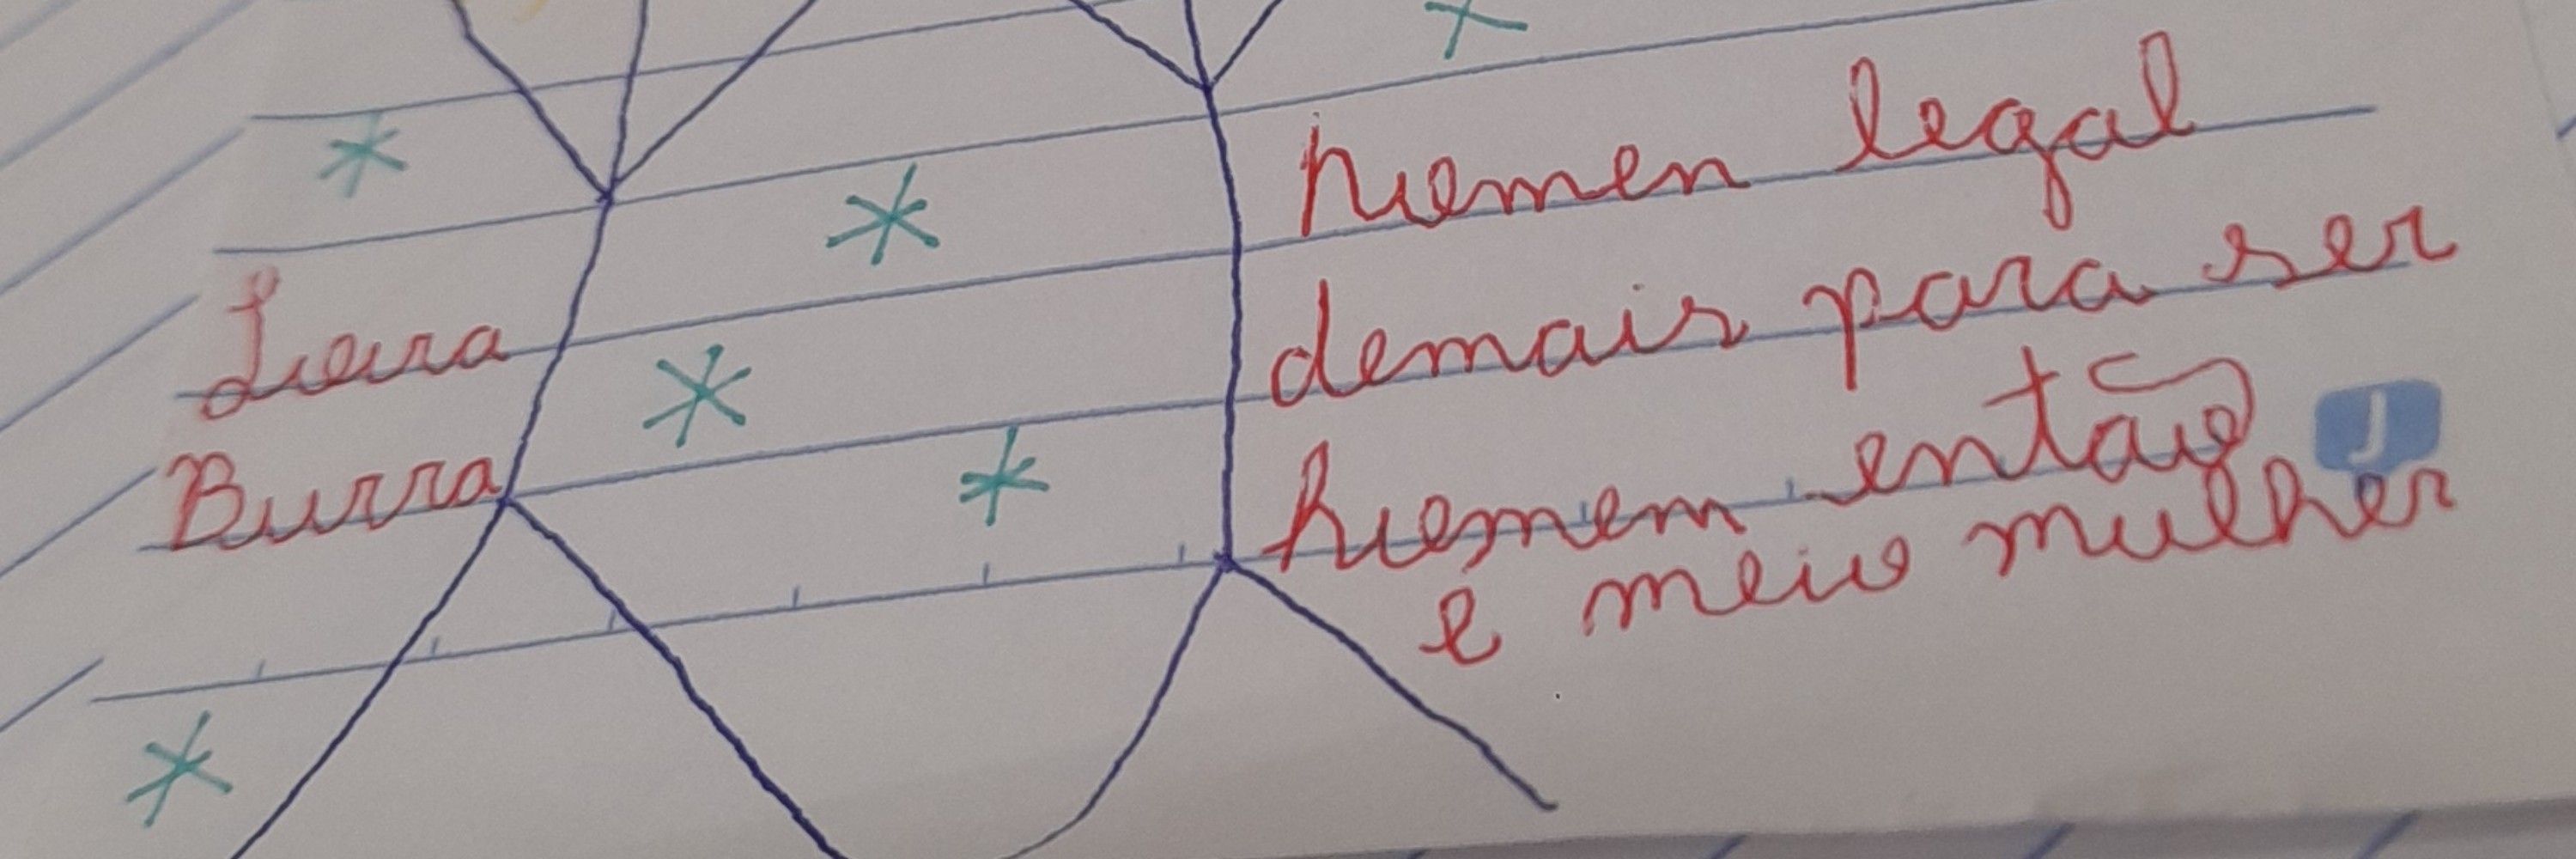 homem legal
demais para ser
Loira
homem então
Burra
é meio mulher
J